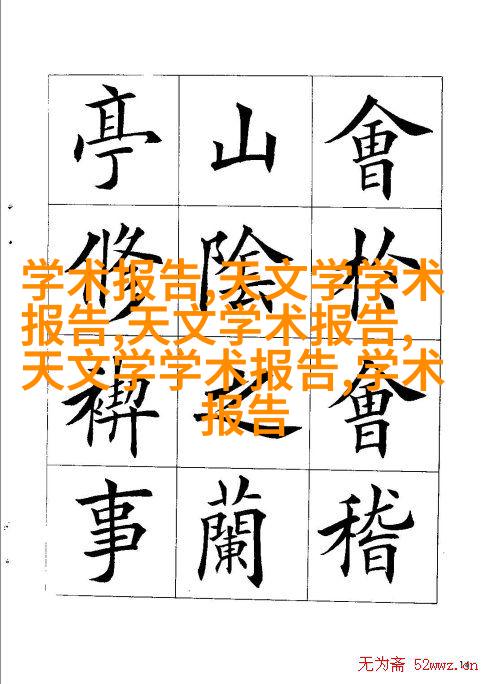 會於會稽
山陰之蘭
亭脩禊事
学术报告,天文学学术
报告,天文学术报告,
天文学学术报告,学术
报告
无为斋 52wwz.cn